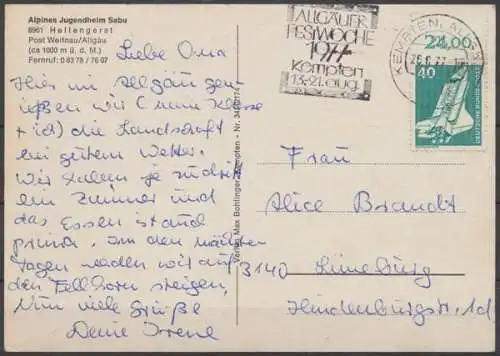 Alpines Jugendheim Sabu
8961 Hellengerst
Post Weitnau/Allgäu
(ca 1000 m ü. d. M.)
Fernruf: 0 83 78 / 76 97
Liebe Oma
Hier im Allgäu gen-
ießen wir (meine Klasse
+ ich) die Landschaft
bei gutem Wetter.
Wir haben je zu dritt
ein Zimmer und
das Essen ist auch
prima. In den nächsten
Tagen wollen wir auf
den Fellhorn steigen.
Nun viele Grüße
Deine Irene
Verlag Max Bohtlinger, Kempten - Nr.
ALLGÄUER
FESTWOCHE
1977
Kempten
13.-21. aug.
KEMPTEN, ALLGÄU
24,00
40
DEUTSCHE BUNDESPOST
Frau
Alice Brandt
3140 Lüneburg
Hindenburgstr. 1d